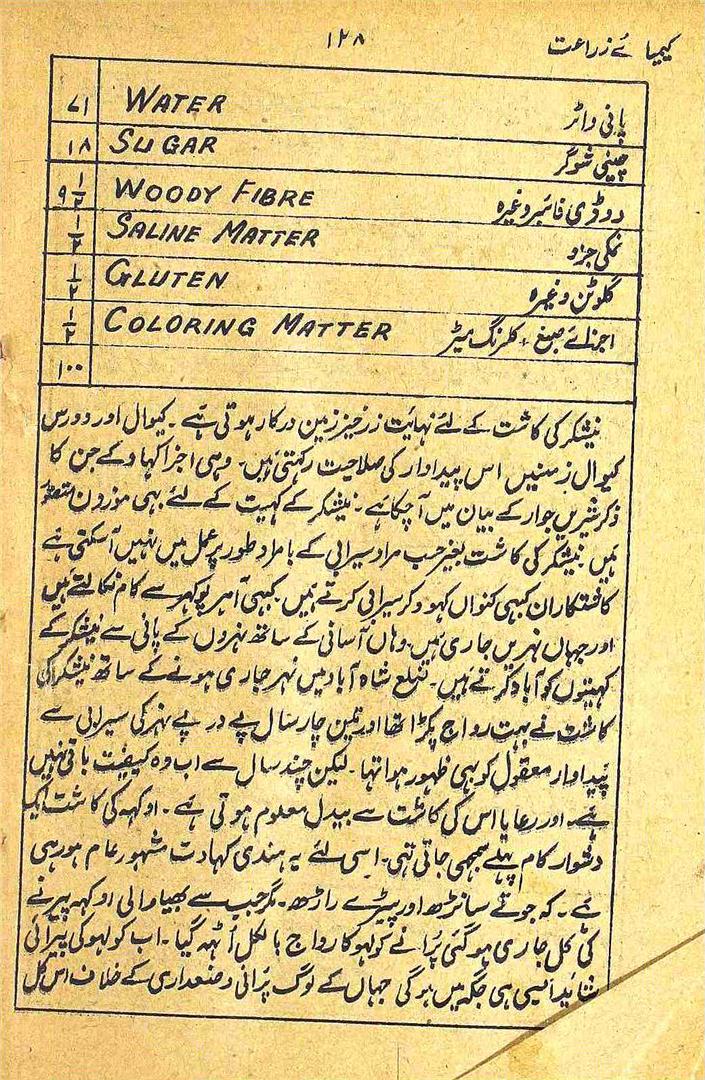 کیمیائے زراعت ۱۲۸
پانی واٹر WATER ۷۱
چینی شوگر SUGAR ۱۸
ووڈی فائبر وغیرہ WOODY FIBRE ۹ ۱/۲
نمکی جزو SALINE MATTER ۱/۲
گلوٹن وغیرہ GLUTEN ۱/۲
اجزائے صبغ، کلرنگ میٹر COLORING MATTER ۱/۲
۱۰۰
نیشکر کی کاشت کے لئے نہایت زرخیز زمین درکار ہوتی ہے۔ کیوال اور دورس
کیوال زمینیں اس پیداوار کی صلاحیت رکھتی ہیں۔ وہی اجزا کہاد کے جن کا
ذکر شیریں جوار کے بیان میں آ چکا ہے۔ نیشکر کے کہیت کے لئے بہی موزون متصوّر
ہیں نیشکر کی کاشت بغیر حسب مراد سیرابی کے بامراد طور پر عمل میں نہیں آ سکتی ہے
کاشتکاران کبہی کنواں کہود کر سیرابی کرتے ہیں۔ کبہی آہر پوکہر سے کام نکالتے ہیں
اور جہاں نہریں جاری ہیں۔ وہاں آسانی کے ساتھ نہروں کے پانی سے نیشکر کے
کہیتوں کو آباد کرتے ہیں۔ ضلع شاہ آباد میں نہر جاری ہونے کے ساتھ نیشکر کی
کاشت نے بہت رواج پکڑا تھا اور تین چار سال پے در پے نہر کی سیرابی سے
پیداوار معقول کو بہی ظہور ہوا تہا۔ لیکن چند سال سے اب وہ کیفیت باقی نہیں
ہے۔ اور رعایا اس کی کاشت سے بیدل معلوم ہوتی ہے۔ اوکہہ کی کاشت ایک
دشوار کام پہلے سمجہی جاتی تہی۔ اسی لئے یہ ہندی کہاوت مشہور عام ہو رہی
ہے۔ کہ جوتے سانڑھ اور پیڑے راڑھ۔ مگر جب سے بھیا والی اوکہہ پیرنے
کی کل جاری ہو گئی پرانے کولہو کا رواج بالکل اُٹہہ گیا۔ اب کولہو کی پیرائی
شائد ایسی ہی جگہ میں ہوگی جہاں کے لوگ پرانی وضعداری کے خلاف اس کل